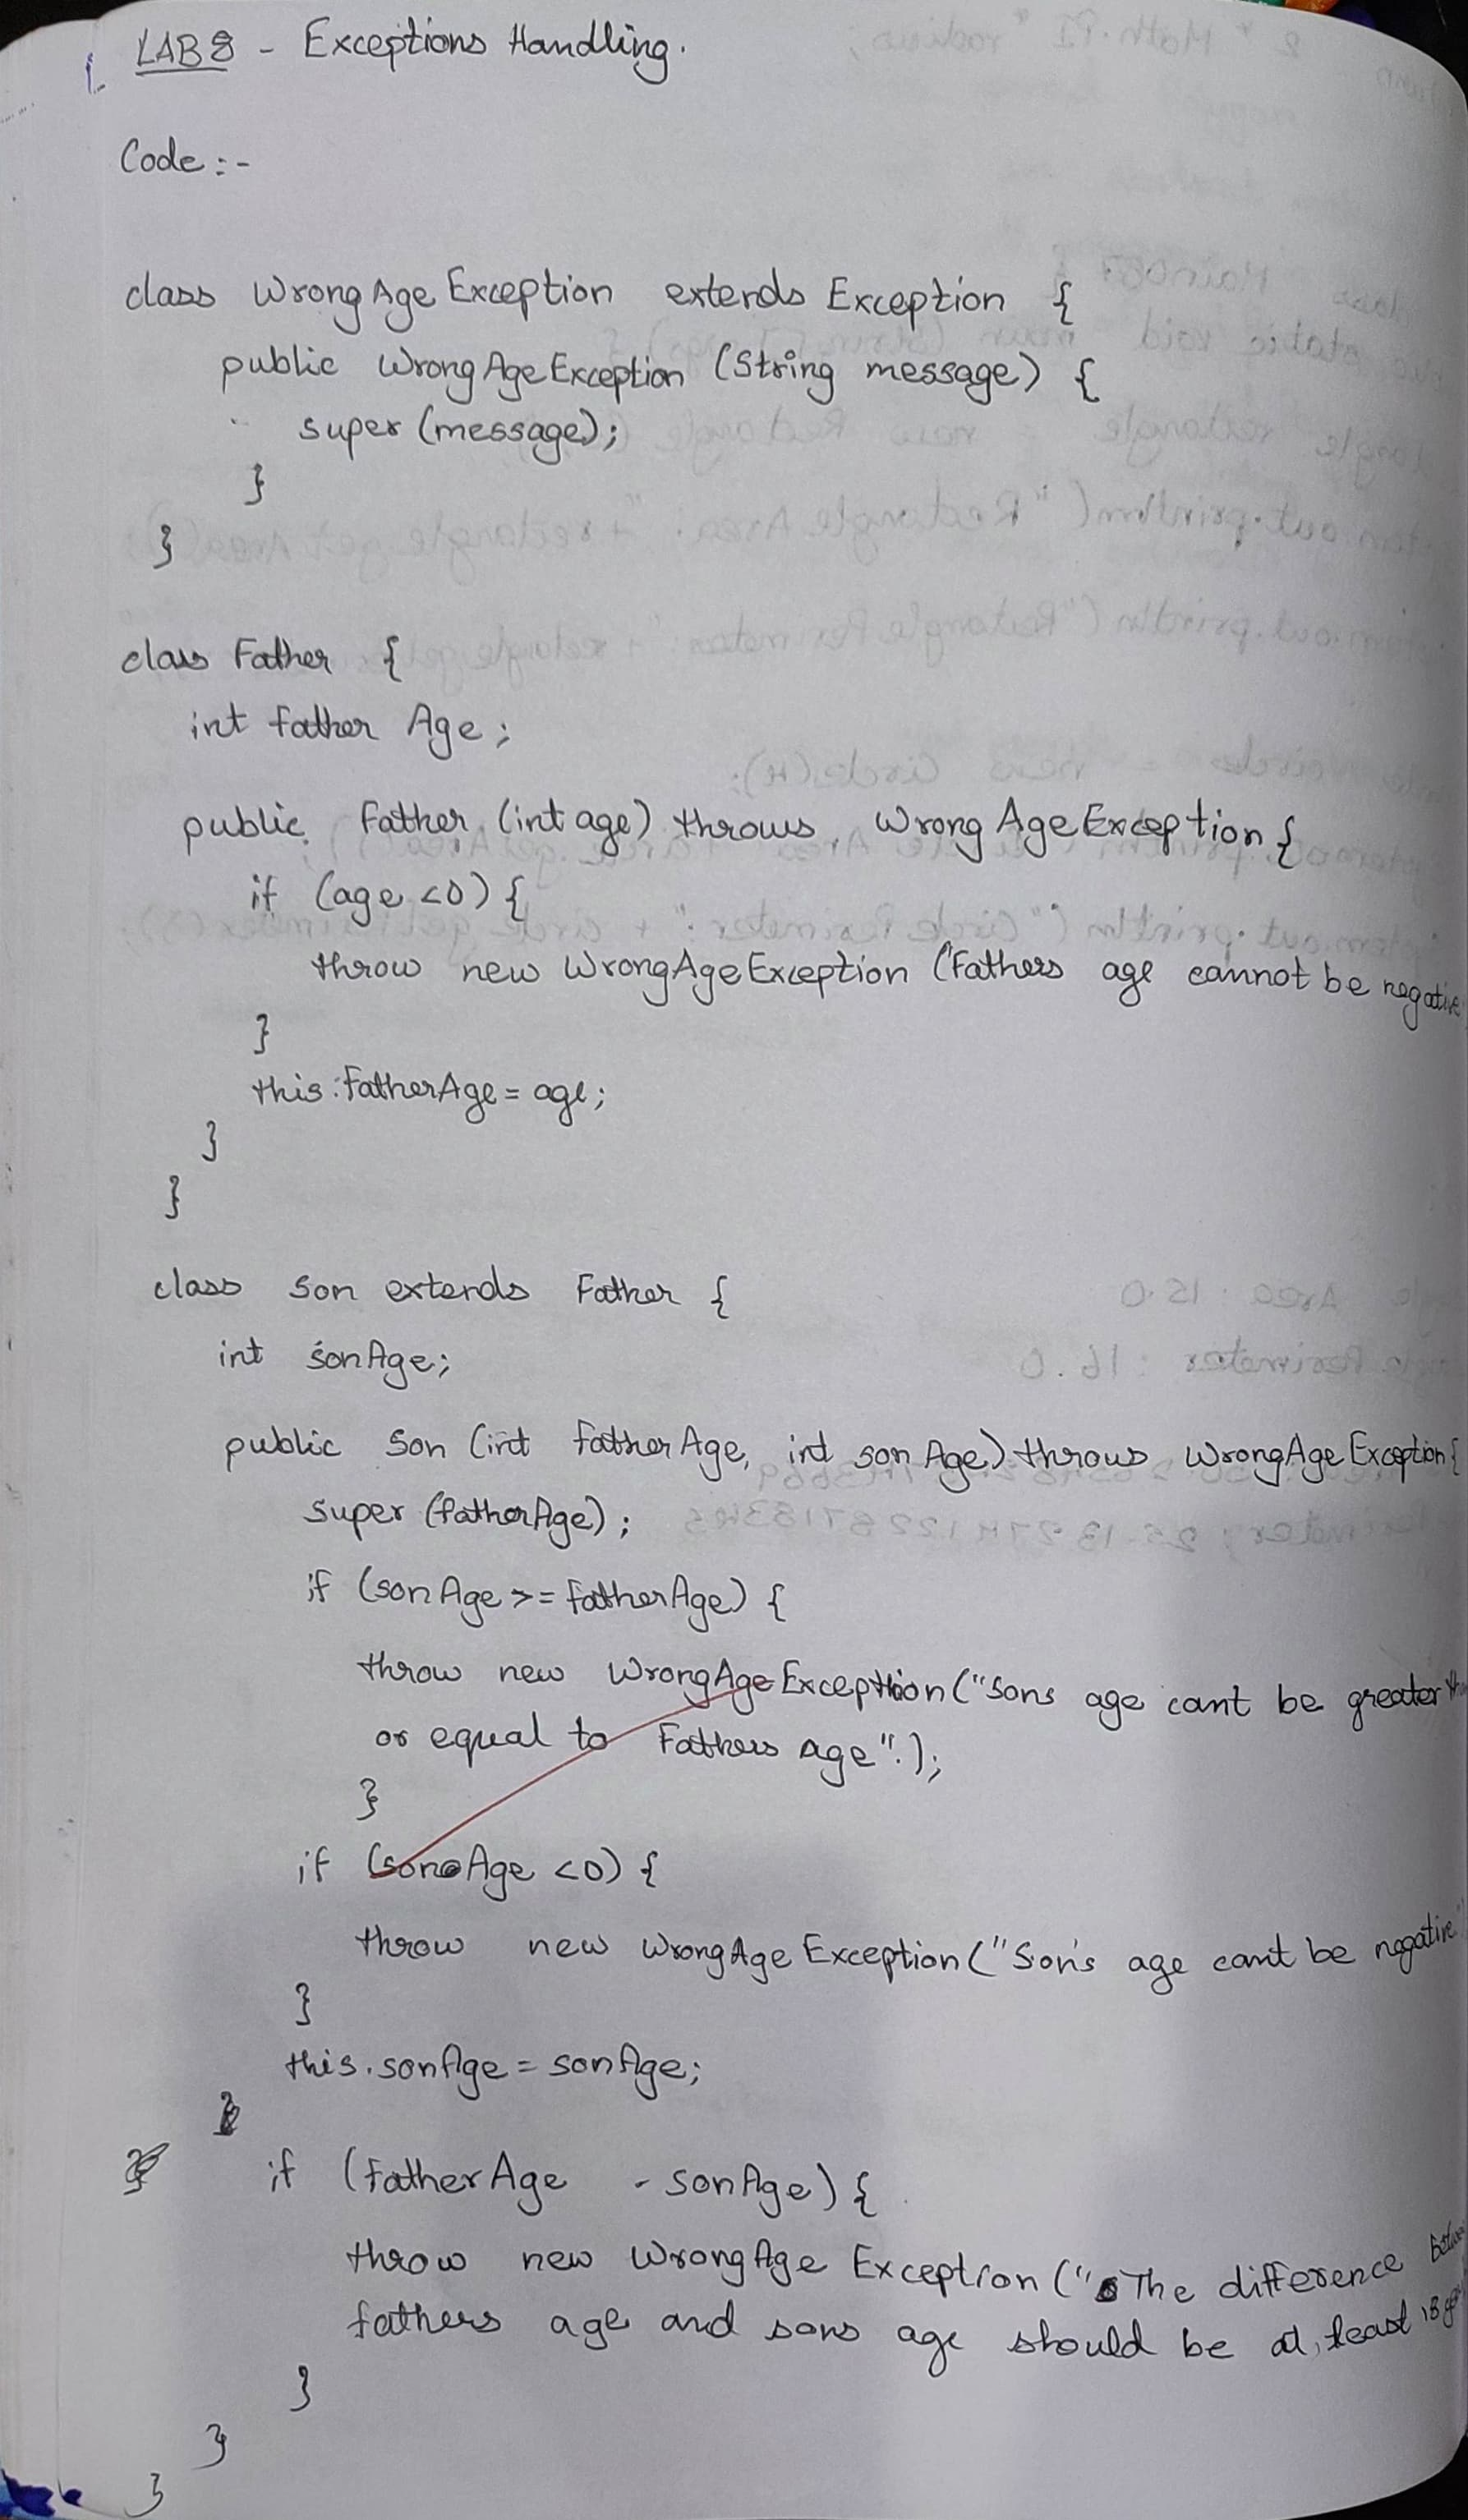 1. LAB 8 - Exceptions Handling.
Code :-
class WrongAgeException extends Exception {
public WrongAgeException (String message) {
super (message);
}
}
class Father {
int father Age ;
public Father (int age) throws WrongAgeException {
if (age <0) {
throw new WrongAgeException ("Fathers age cannot be negative
}
this.FatherAge = age;
}
}
class Son extends Father {
int sonAge;
public Son (int fatherAge, int sonAge) throws WrongAgeException {
super (fatherAge) ;
if (sonAge >= fatherAge) {
throw new WrongAgeException ("Sons age cant be greater
or equal to Fathers age".);
}
if (sonAge <0) {
throw new WrongAgeException ("Son's age can't be negative"
}
this.sonAge = sonAge;
if (fatherAge - sonAge) {
throw new WrongAge Exception ("The difference
fathers age and sons age should be at least 18
}
}
}